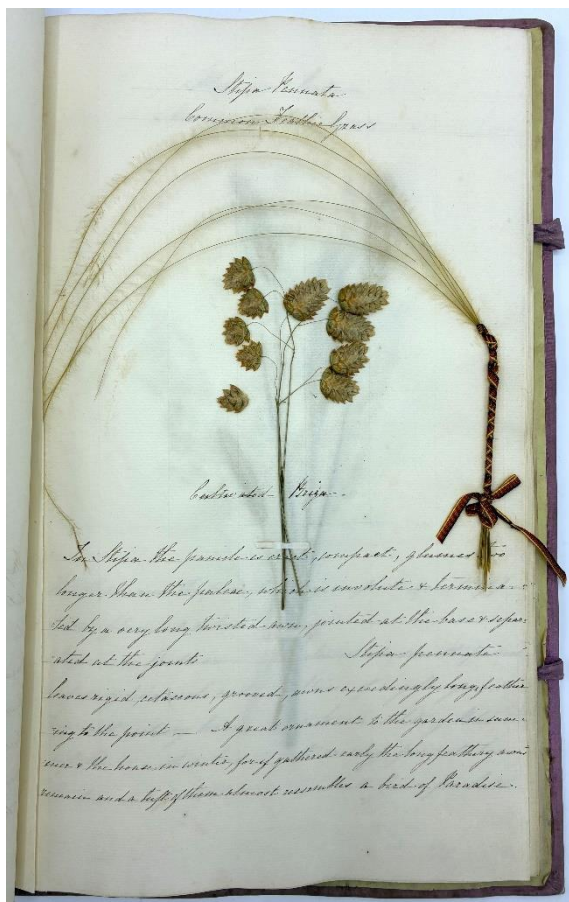 Stipa Pennata
Common Feather Grass
Cultivated - Briza -
In Stipa the panicle is erect, compact, glumes two
longer than the paleae, which is involute & termina-
ted by a very long twisted awn, jointed at the base & separ-
ated at the joints Stipa pennata
leaves rigid setaceous, grooved, awns exceedingly long, feathe-
ring to the point — A great ornament to the garden in sum-
mer & the house in winter, for if gathered early the long feathery awns
remain and a tuft of them almost resembles a bird of Paradise.